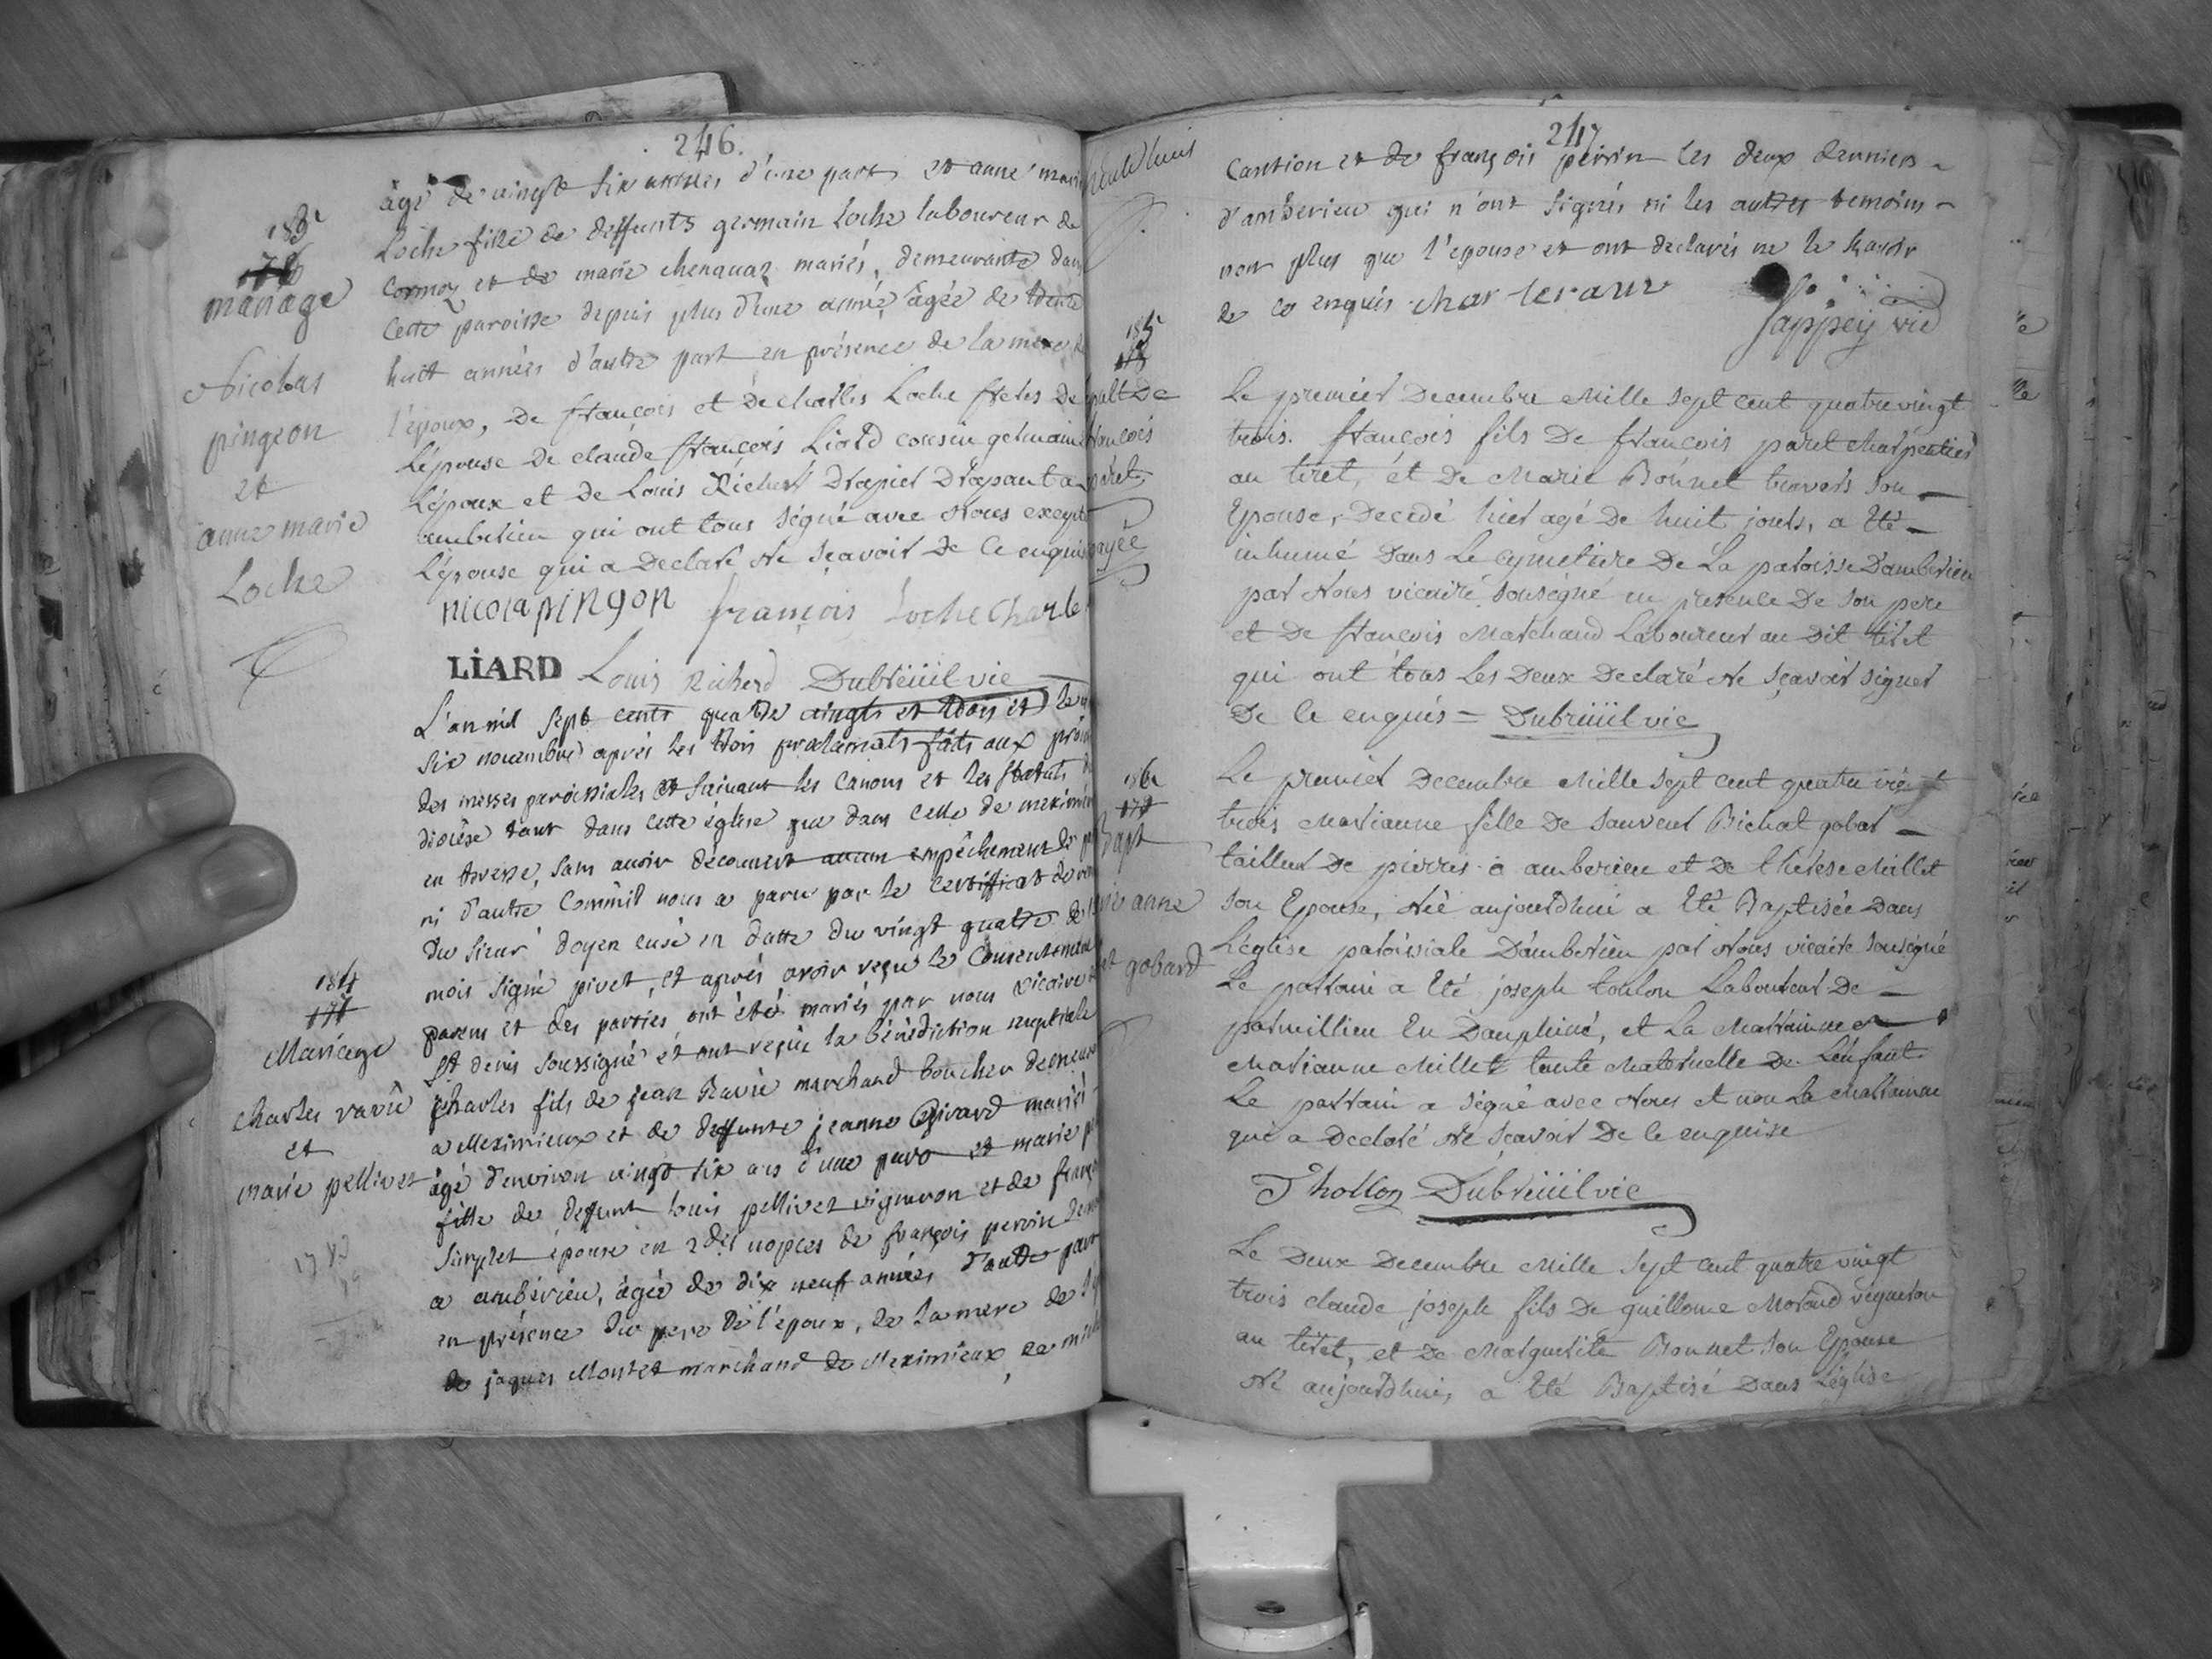 246.
183e
mariage
Nicolas
pingeon
et
anne marie
Loche
âgé de vingt six années d'une part, et anne marie
Loche fille de deffunts germain Loche laboureur de
Cormoz et de marie chenavaz mariés, demeurante dans
cette paroisse depuis plus d'une année, âgée de trente
huit années d'autre part en présence de la mere de
l'époux, De françois et de charles Loche freres De
L'épouse De claude françois Liard cousin germain
L'époux et de Louis Richerd Drapier Drapant a
amberieu qui ont tous signé avec Nous excepté
L'épouse qui a Declaré Ne sçavoir De ce enquis
nicola pingon françois Loche Charle
LIARD Louis Richerd Dubreüil vic
184
Mariage
charles ravie
et
marie pellivet
L'an mil sept cents quatre vingts et trois et le
six novembre après les trois proclamats faits aux prônes
des messes paroissiales et suivant les canons et les statuts
diocèse tant dans cette église que dans celle de meximieux
en Bresse, sans avoir découvert aucun empêchement de
ni d'autre commil nous a paru par le certifficat de
Du sieur doyen curé en datte du vingt quatre de
mois signé pivet, et après avoir reçu le consentement
parens et des parties, ont été mariés par nous vicaire
St denis soussigné et ont reçu la bénédiction nuptiale
Charles fils de jean Ravie marchand boucher demeurant
a Meximieux et de deffunte jeanne Givard mariés
âgé d'environ vingt six ans d'une part et marie
fille de deffunt louis pellivet vigneron et de
Simplet épouse en 2des nopces de françois perrin
a ambérieu, âgée de dix neuf années d'autre part
en présence du pere de l'époux, de la mere de
de jaques Montet marchand de Meximieux, de
247
Caution et de françois perrin les deux derniers
d'amberieu qui n'ont signés ni les autres temoins
non plus que l'epouse et ont declarés ne le savoir
de ce enquis charleraux
Sappey vic
185e
Le premier Decembre Mille sept cent quatrevingt
trois. françois fils De françois paret charpentier
au tiret, et De Marie Bonnet travers son
Epouse, Decedé hier agé De huit jours, a Eté
inhumé Dans Le cymetiere De La paroisse D'amberieu
par Nous vicaire soussigné en presence De son pere
et De françois Marchand Laboureur au Dit tiret
qui ont tous Les Deux Declaré Ne sçavoir signer
De ce enquis = Dubreüil vic
186
Bapt
gobard
Le premier Decembre Mille sept cent quatre vingt
trois Marianne fille De sauveur Bichat gobar
tailleur De pierres a amberieu et De therese Millet
son Epouse, Née aujourdhui a Eté Baptisée Dans
L'église paroissiale D'amberieu par Nous vicaire soussigné
Le parrain a Eté joseph tholon Laboureur De
parmillieu En Dauphiné, et La Marraine
Marianne Millet tante Maternelle De L'enfant
Le parrain a signé avec Nous et non La Marraine
qui a Declaré Ne sçavoir De ce enquise
J hollon Dubreüil vic
Le Deux Decembre Mille sept cent quatre vingt
trois claude joseph fils De guillaume Morand vigneron
au tiret, et De Marguerite Bonnet son Epouse
Né aujourdhui, a Eté Baptisé Dans L'église